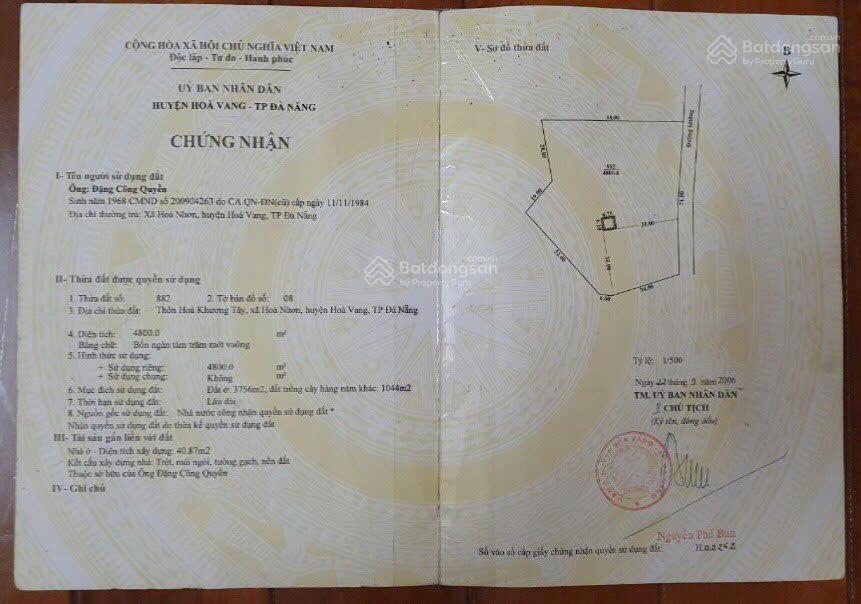 CỘNG HÒA XÃ HỘI CHỦ NGHĨA VIỆT NAM
Độc lập - Tự do - Hạnh phúc
UỶ BAN NHÂN DÂN
HUYỆN HOÀ VANG - TP ĐÀ NẴNG
CHỨNG NHẬN
I- Tên người sử dụng đất
Ông: Đặng Công Quyền
Sinh năm 1968 CMND số 200904263 do CA QN-ĐN(cũ) cấp ngày 11/11/1984
Địa chỉ thường trú: Xã Hoà Nhơn, huyện Hoà Vang, TP Đà Nẵng
II- Thửa đất được quyền sử dụng
1. Thửa đất số: 882 2. Tờ bản đồ số: 08
3. Địa chỉ thửa đất: Thôn Hoà Khương Tây, xã Hoà Nhơn, huyện Hoà Vang, TP Đà Nẵng
4. Diện tích: 4800.0 m²
Bằng chữ: Bốn ngàn tám trăm mét vuông
5. Hình thức sử dụng:
+ Sử dụng riêng: 4800.0 m²
+ Sử dụng chung: Không m²
6. Mục đích sử dụng đất: Đất ở: 3756m2, đất trồng cây hàng năm khác: 1044m2
7. Thời hạn sử dụng đất: Lâu dài
8. Nguồn gốc sử dụng đất: Nhà nước công nhận quyền sử dụng đất *
Nhận quyền sử dụng đất do thừa kế quyền sử dụng đất
III- Tài sản gắn liền với đất
Nhà ở - Diện tích xây dựng: 40.87m2
Kết cấu xây dựng nhà: Trệt, mái ngói, tường gạch, nền đất
Thuộc sở hữu của Ông Đặng Công Quyền
IV- Ghi chú
V- Sơ đồ thửa đất
B
58.00
28.00
882
4800.0
Đường bêtông
71.00
19.00
33.00
32.00
6.00
Tỷ lệ: 1/500
Ngày 22 tháng 9 năm 2006
TM. UỶ BAN NHÂN DÂN
CHỦ TỊCH
(Ký tên, đóng dấu)
Nguyễn Phú Ban
Số vào sổ cấp giấy chứng nhận quyền sử dụng đất: H02252
Batdongsan.com.vn
by PropertyGuru
Batdongsan.com.vn
by PropertyGuru